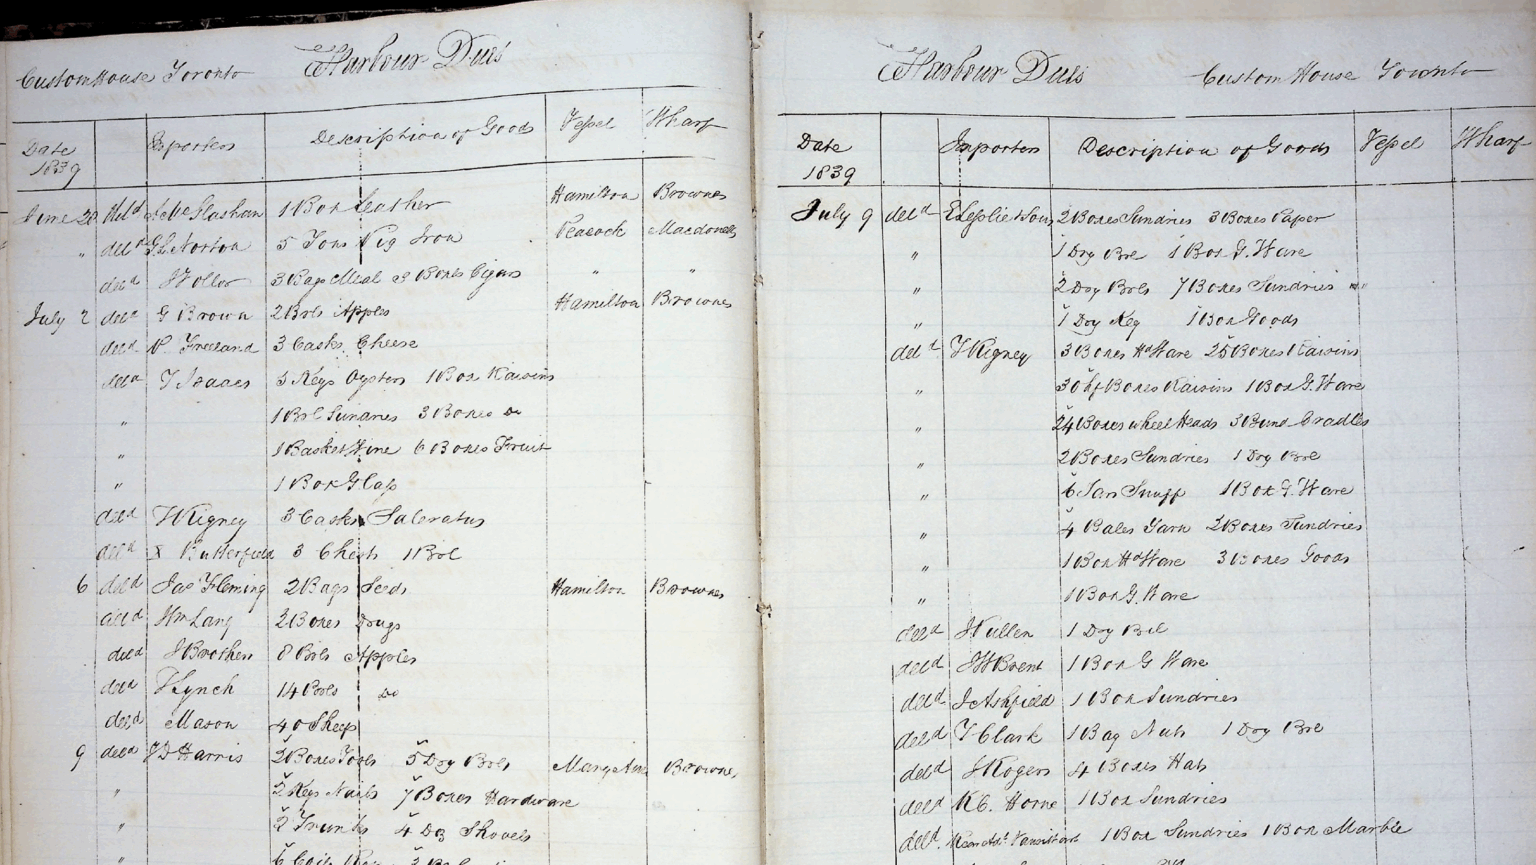 Custom House Toronto Harbour Dues
Date 1839 Exporters Description of Goods Vessel Wharf
June 28 deld J McGlashan 1 Box Leather Hamilton Brownes
" deld G L Norton 5 Tons Pig Iron Peacock Macdonells
deld 3 Bags Meal & 3 Boxes Cigars " "
July 2 deld G Brown 2 Brls Apples Hamilton Brownes
deld P. Freeland 3 Casks Cheese
deld T Isaacs 3 Kegs Oysters 1 Box Raisins
" 1 Brl Sundries 3 Boxes Do
" 1 Basket Wine 6 Boxes Fruit
" 1 Box Glass
deld T Rigney 3 Casks Saleratus
deld Butterfield 3 Chests 1 Brl
6 deld Jas Fleming 2 Bags Seeds Hamilton Brownes
deld Wm Lang 2 Boxes Drugs
deld J Brothers 8 Brls Apples
deld T Lynch 14 Brls Do
deld Mason 40 Sheep
9 deld T D Harris 2 Boxes Tools 5 Dry Brls Brownes
" 2 Kegs Nails 7 Boxes Hardware
" 2 Trunks 4 Dz Shovels
"
Harbour Dues Custom House Toronto
Date 1839 Importers Description of Goods Vessel Wharf
July 9 deld E Leslie & Sons 2 Boxes Sundries 3 Boxes Paper
" 1 Dry Bre 1 Box G. Ware
" 2 Dry Brls 7 Boxes Sundries
" 1 Dry Keg 1 Box Goods
deld T Rigney 3 Boxes Hd Ware 25 Boxes Raisins
" 30 hf Boxes Raisins 1 Box G. Ware
" 24 Boxes wheel Heads 3 Bund Cradles
" 2 Boxes Sundries 1 Dry Bre
" 6 Jars Snuff 1 Box G. Ware
" 4 Bales Yarn 2 Boxes Sundries
" 1 Box Hd Ware 3 Boxes Goods
" 1 Box G. Ware
deld J Cullen 1 Dry Brl
deld J W Brent 1 Box G Ware
deld J Ashfield 1 Box Sundries
deld T Clark 1 Bag Nuts 1 Dry Bre
deld J Rogers 4 Boxes Hats
deld R C. Horne 1 Box Sundries
deld. 1 Box Sundries 1 Box Marble